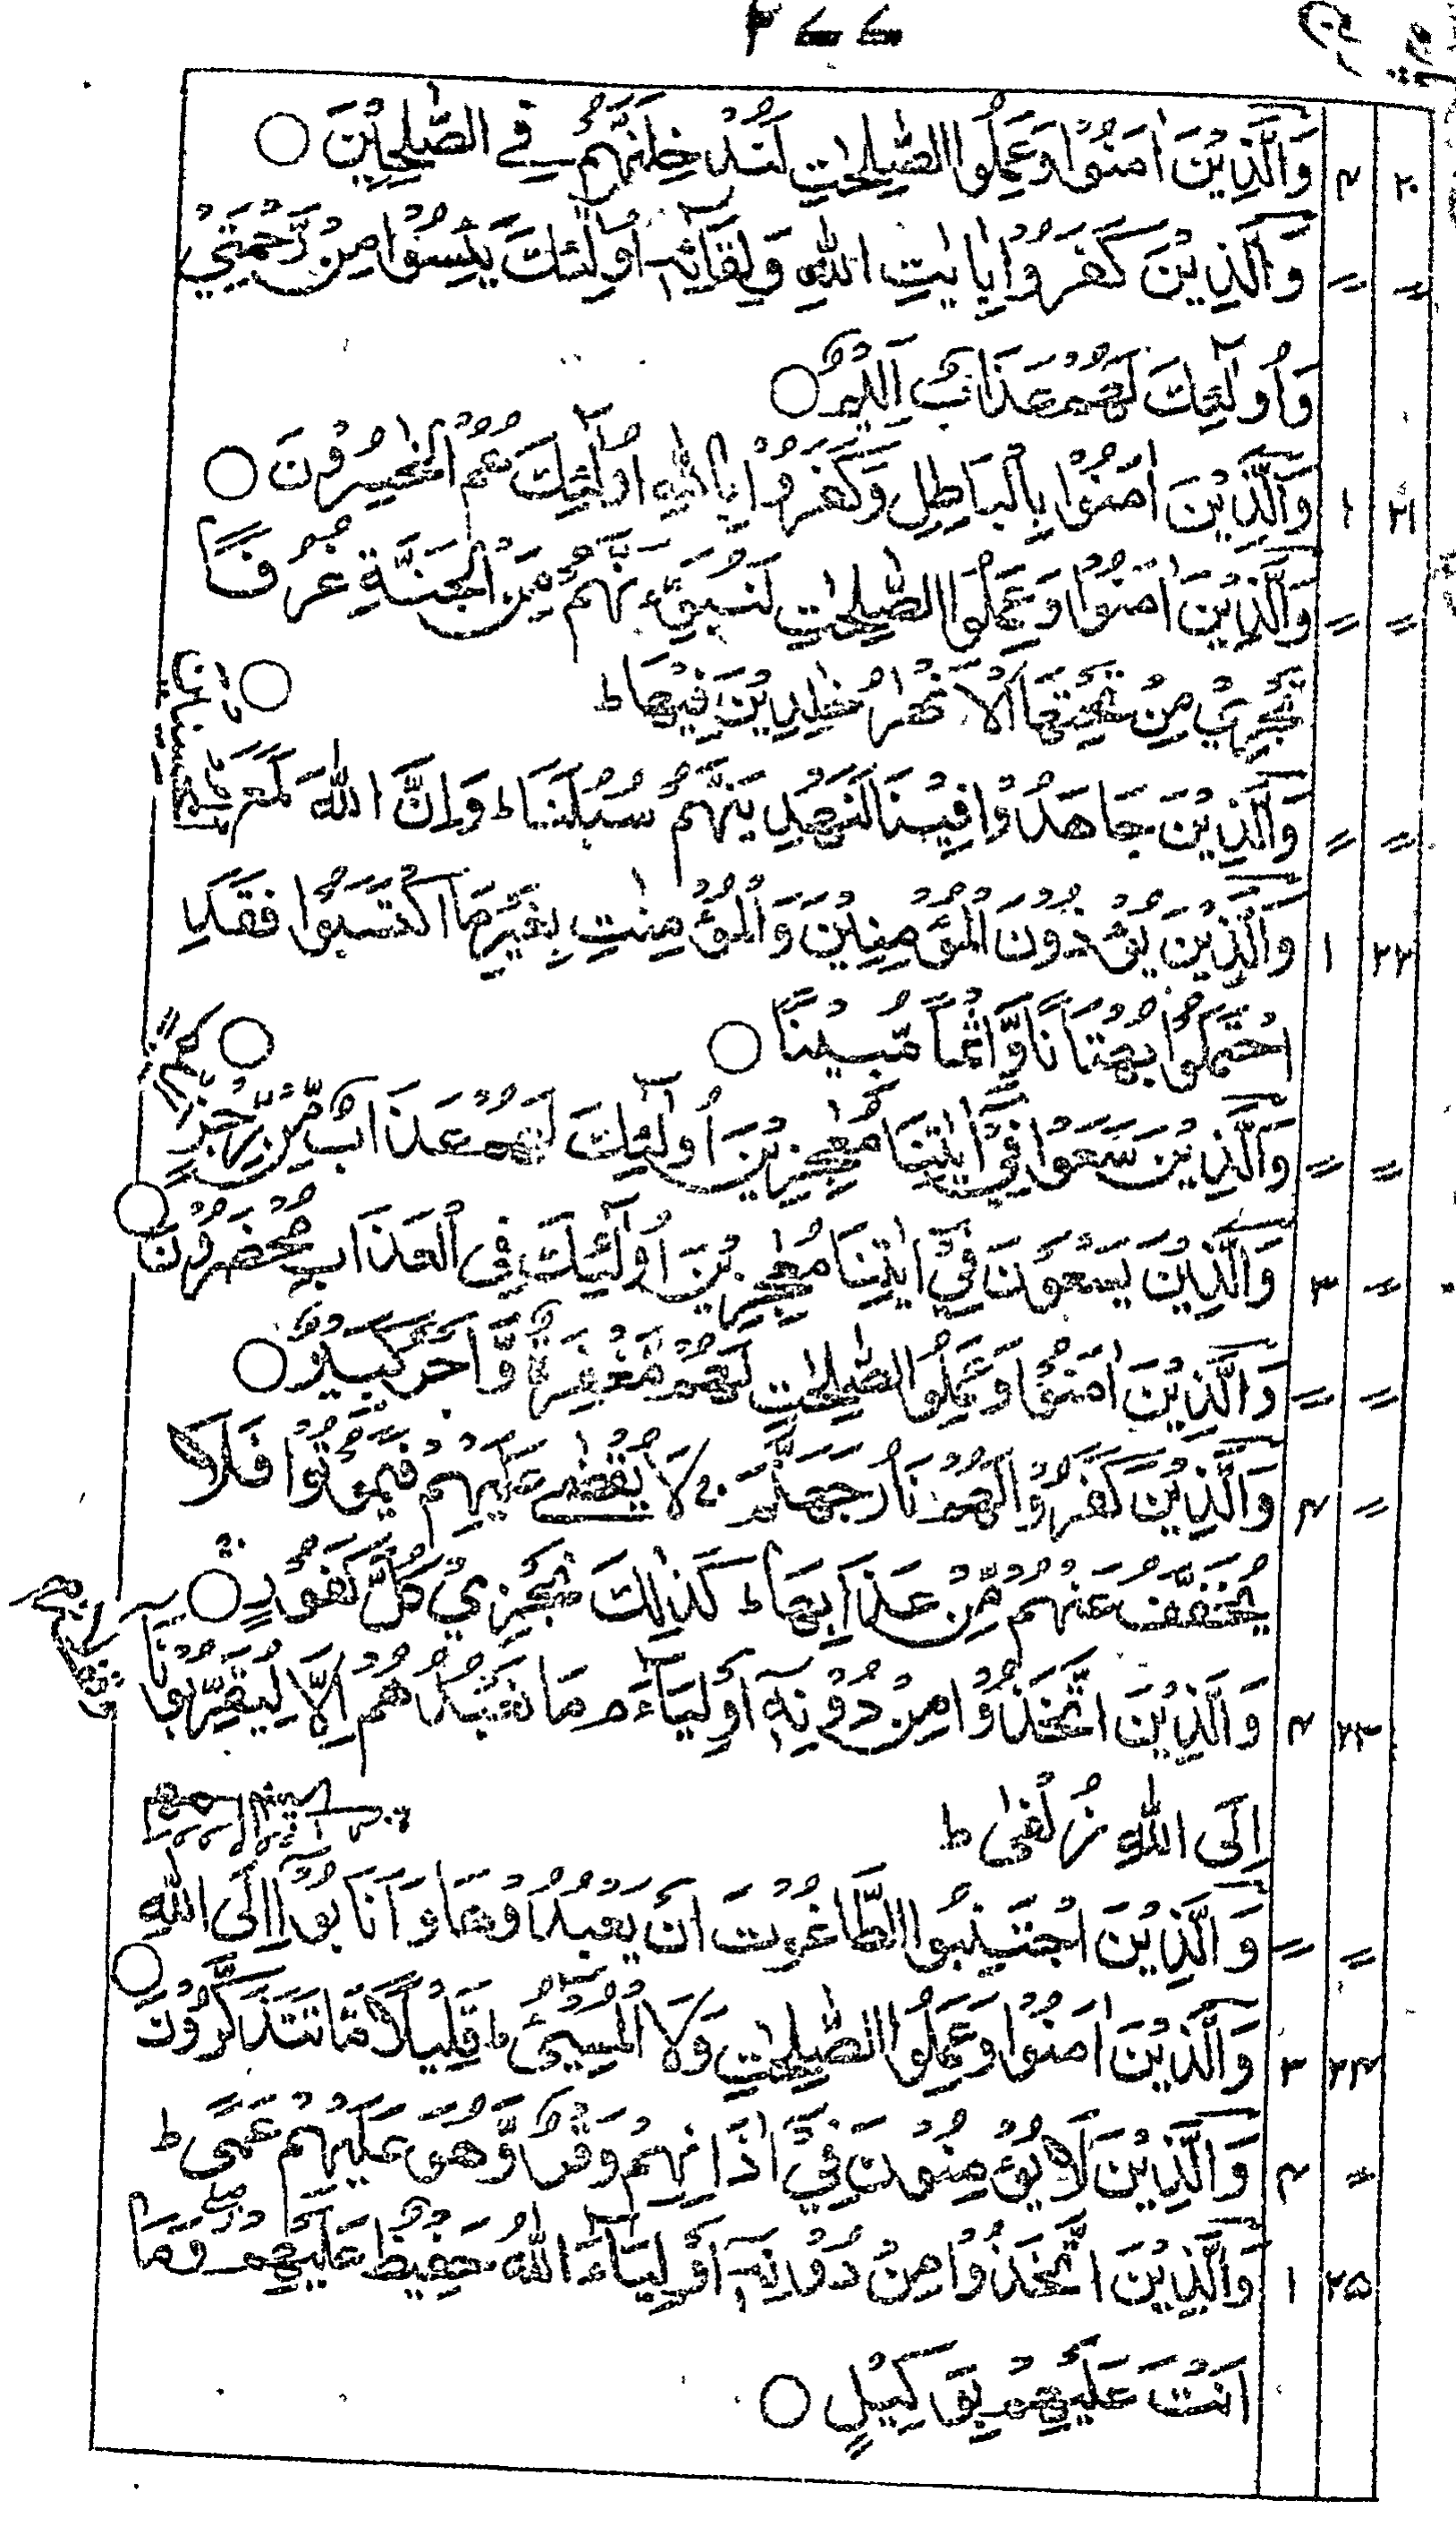 ۳۷۷
۲۰ ۴ وَالَّذِيْنَ اٰمَنُوْا وَعَمِلُوا الصّٰلِحٰتِ لَنُدْخِلَنَّهُمْ فِے الصّٰلِحِيْنَ ○
〃 〃 وَالَّذِيْنَ كَفَرُوْا بِاٰيٰتِ اللّٰهِ وَلِقَآئِهٖٓ اُولٰٓئِكَ يَئِسُوْا مِنْ رَّحْمَتِيْ
وَاُولٰٓئِكَ لَهُمْ عَذَابٌ اَلِيْمٌ ○
۲۱ ۱ وَالَّذِيْنَ اٰمَنُوْا بِالْبَاطِلِ وَكَفَرُوْا بِاللّٰهِ اُولٰٓئِكَ هُمُ الْخٰسِرُوْنَ ○
〃 〃 وَالَّذِيْنَ اٰمَنُوْا وَعَمِلُوا الصّٰلِحٰتِ لَنُبَوِّئَنَّهُمْ مِّنَ الْجَنَّةِ غُرَفًا
تَجْرِيْ مِنْ تَحْتِهَا الْاَنْهٰرُ خٰلِدِيْنَ فِيْهَا ط ○
〃 〃 وَالَّذِيْنَ جَاهَدُوْا فِيْنَا لَنَهْدِيَنَّهُمْ سُبُلَنَا ط وَاِنَّ اللّٰهَ لَمَعَ الْمُحْسِنِيْنَ
۲۲ ۱ وَالَّذِيْنَ يُؤْذُوْنَ الْمُؤْمِنِيْنَ وَالْمُؤْمِنٰتِ بِغَيْرِ مَا اكْتَسَبُوْا فَقَدِ
احْتَمَلُوْا بُهْتَانًا وَّاِثْمًا مُّبِيْنًا ○ ○
〃 〃 وَالَّذِيْنَ سَعَوْا فِيْٓ اٰيٰتِنَا مُعٰجِزِيْنَ اُولٰٓئِكَ لَهُمْ عَذَابٌ مِّنْ رِّجْزٍ اَلِيْمٌ
〃 ۳ وَالَّذِيْنَ يَسْعَوْنَ فِيْٓ اٰيٰتِنَا مُعٰجِزِيْنَ اُولٰٓئِكَ فِي الْعَذَابِ مُحْضَرُوْنَ ○
〃 〃 وَالَّذِيْنَ اٰمَنُوْا وَعَمِلُوا الصّٰلِحٰتِ لَهُمْ مَّغْفِرَةٌ وَّاَجْرٌ كَبِيْرٌ ○
〃 ۴ وَالَّذِيْنَ كَفَرُوْا لَهُمْ نَارُ جَهَنَّمَ ج لَا يُقْضٰے عَلَيْهِمْ فَيَمُوْتُوْا فَلَا
يُخَفَّفُ عَنْهُمْ مِّنْ عَذَابِهَا ط كَذٰلِكَ نَجْزِيْ كُلَّ كَفُوْرٍ ○
۲۳ ۴ وَالَّذِيْنَ اتَّخَذُوْا مِنْ دُوْنِهٖٓ اَوْلِيَآءَ م مَا نَعْبُدُهُمْ اِلَّا لِيُقَرِّبُوْنَآ
اِلَى اللّٰهِ زُلْفٰى ط
〃 〃 وَالَّذِيْنَ اجْتَنَبُوا الطَّاغُوْتَ اَنْ يَّعْبُدُوْهَا وَاَنَابُوْٓا اِلَى اللّٰهِ
۲۴ ۳ وَالَّذِيْنَ اٰمَنُوْا وَعَمِلُوا الصّٰلِحٰتِ وَلَا الْمُسِيْٓءُ ط قَلِيْلًا مَّا تَتَذَكَّرُوْنَ ○
〃 ۴ وَالَّذِيْنَ لَا يُؤْمِنُوْنَ فِيْٓ اٰذَانِهِمْ وَقْرٌ وَّهُوَ عَلَيْهِمْ عَمًى ط
۲۵ ۱ وَالَّذِيْنَ اتَّخَذُوْا مِنْ دُوْنِهٖٓ اَوْلِيَآءَ اللّٰهُ حَفِيْظٌ عَلَيْهِمْ وَمَا
اَنْتَ عَلَيْهِمْ بِوَكِيْلٍ ○